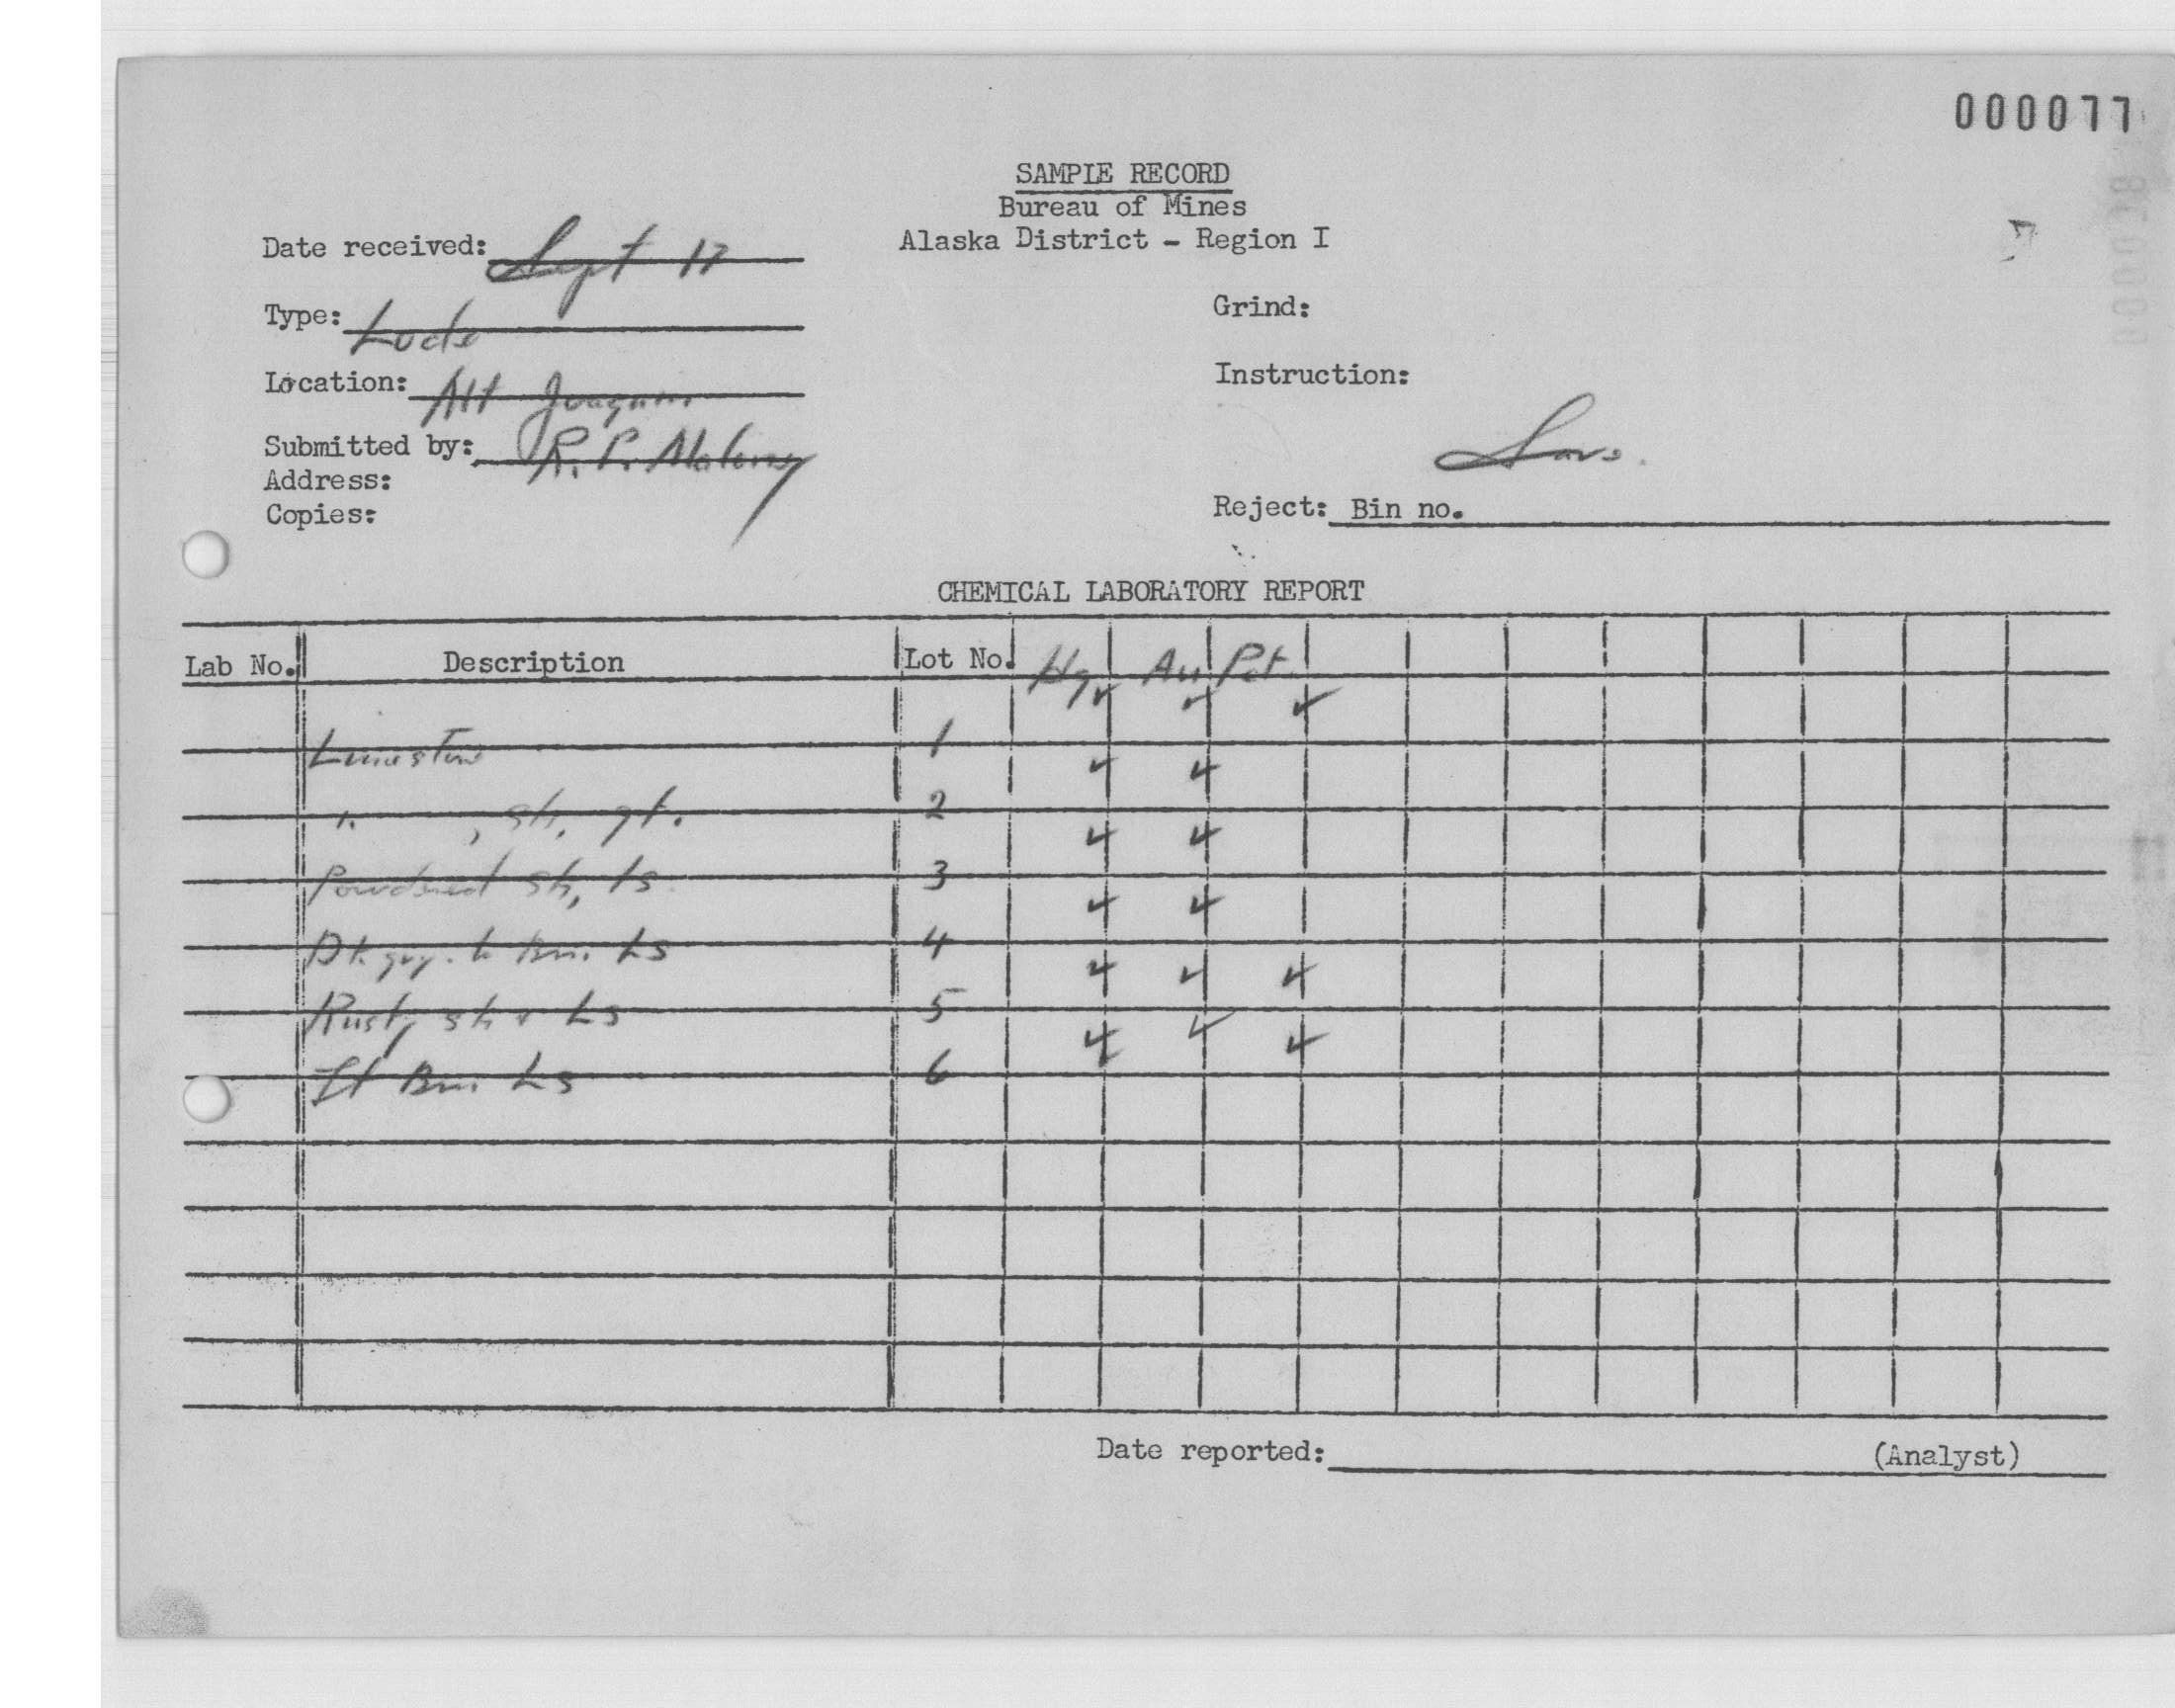 000077
SAMPLE RECORD
Bureau of Mines
Alaska District - Region I
Date received: Sept 17
Type: Lode
Location: Mt Joaquin
Submitted by: R.P. Maloney
Address:
Copies:
Grind:
Instruction:
Save.
Reject: Bin no.
CHEMICAL LABORATORY REPORT
Lab No. Description Lot No. Hg Au Pet
✓ ✓ ✓
Limestone 1
✓ ✓
" , sh, qt. 2
✓ ✓
Powdered sh, ls 3
✓ ✓
Dk. gry. to Brn. Ls 4
✓ ✓ ✓
Rusty sh & Ls 5
✓ ✓ ✓
Lt Brn Ls 6
Date reported: (Analyst)